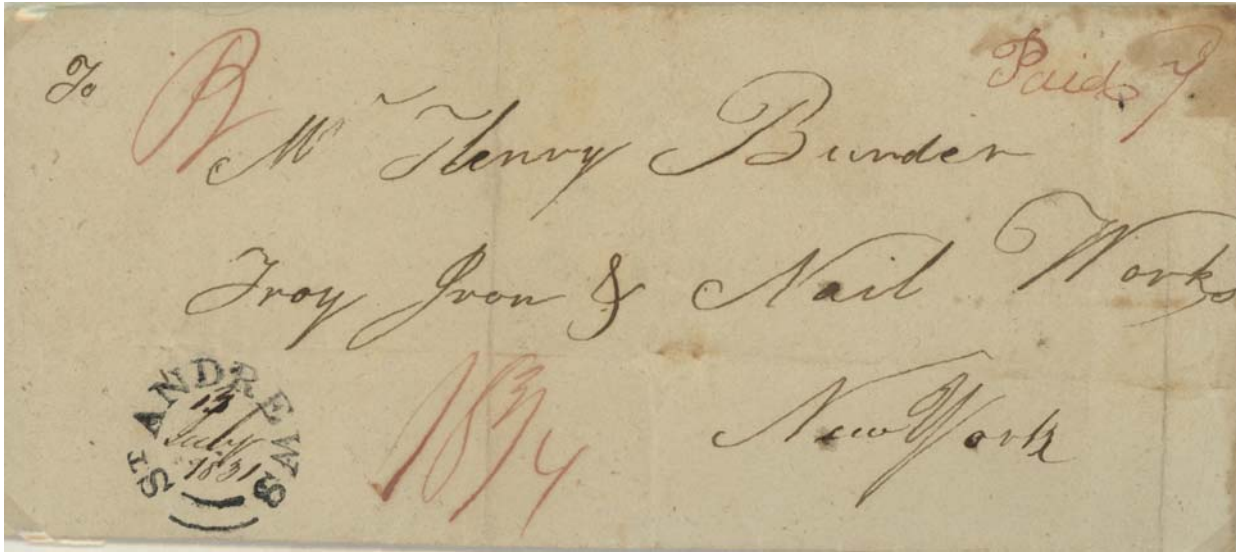 To
Paid 7
Mr Henry Burden
Troy Iron & Nail Works
New York
18 3/4
ST ANDREWS
13
July
1831